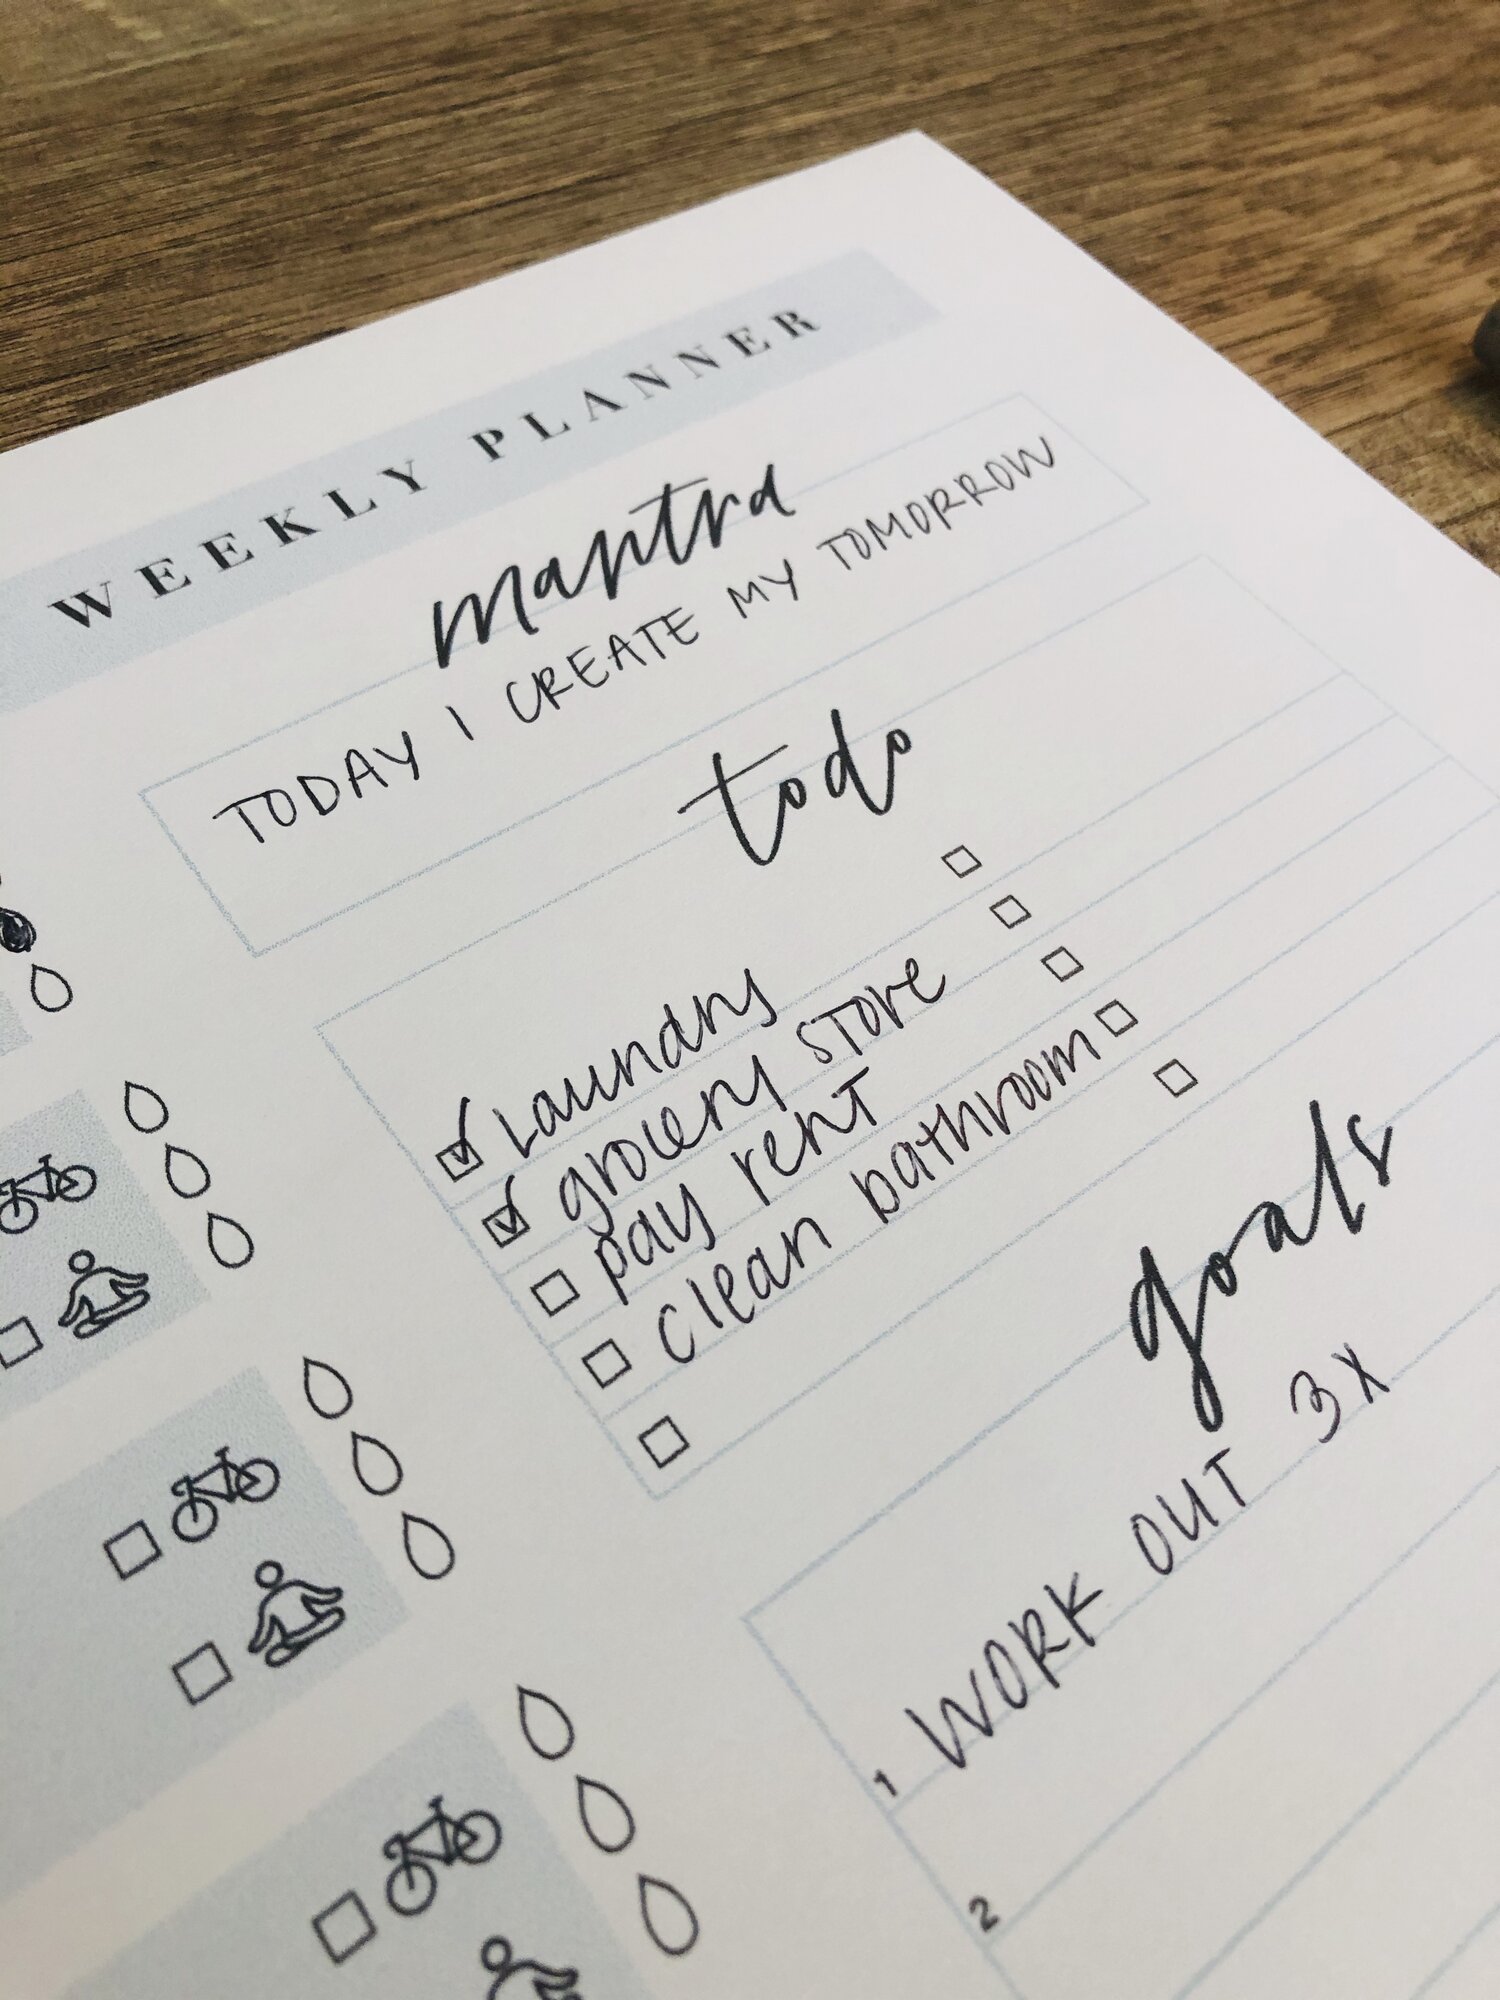 WEEKLY PLANNER
mantra
TODAY I CREATE MY TOMORROW
todo
Laundry
grocery store
pay rent
clean bathroom
goals
1 WORK OUT 3X
2